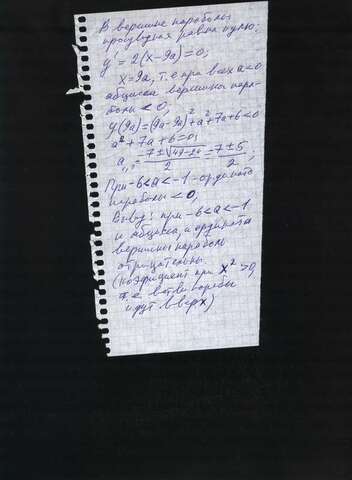 В вершине параболы
производная равна нулю;
y' = 2(x-9a) = 0;
x = 9a, т.е при всех a<0
абцисса вершины пара-
болы < 0;
y(9a) = (9a-9a)²+a²+7a+6<0
a²+7a+6=0;
a₁,₂ = -7±√49-24 / 2 = -7±5 / 2;
При -6<a<-1 - ордината
параболы < 0,
Вывод: при -6<a<-1
и абцисса, и ордината
вершины парабол
отрицательны.
(Коэфициент при x²>0,
т.е ветви
идут вверх)